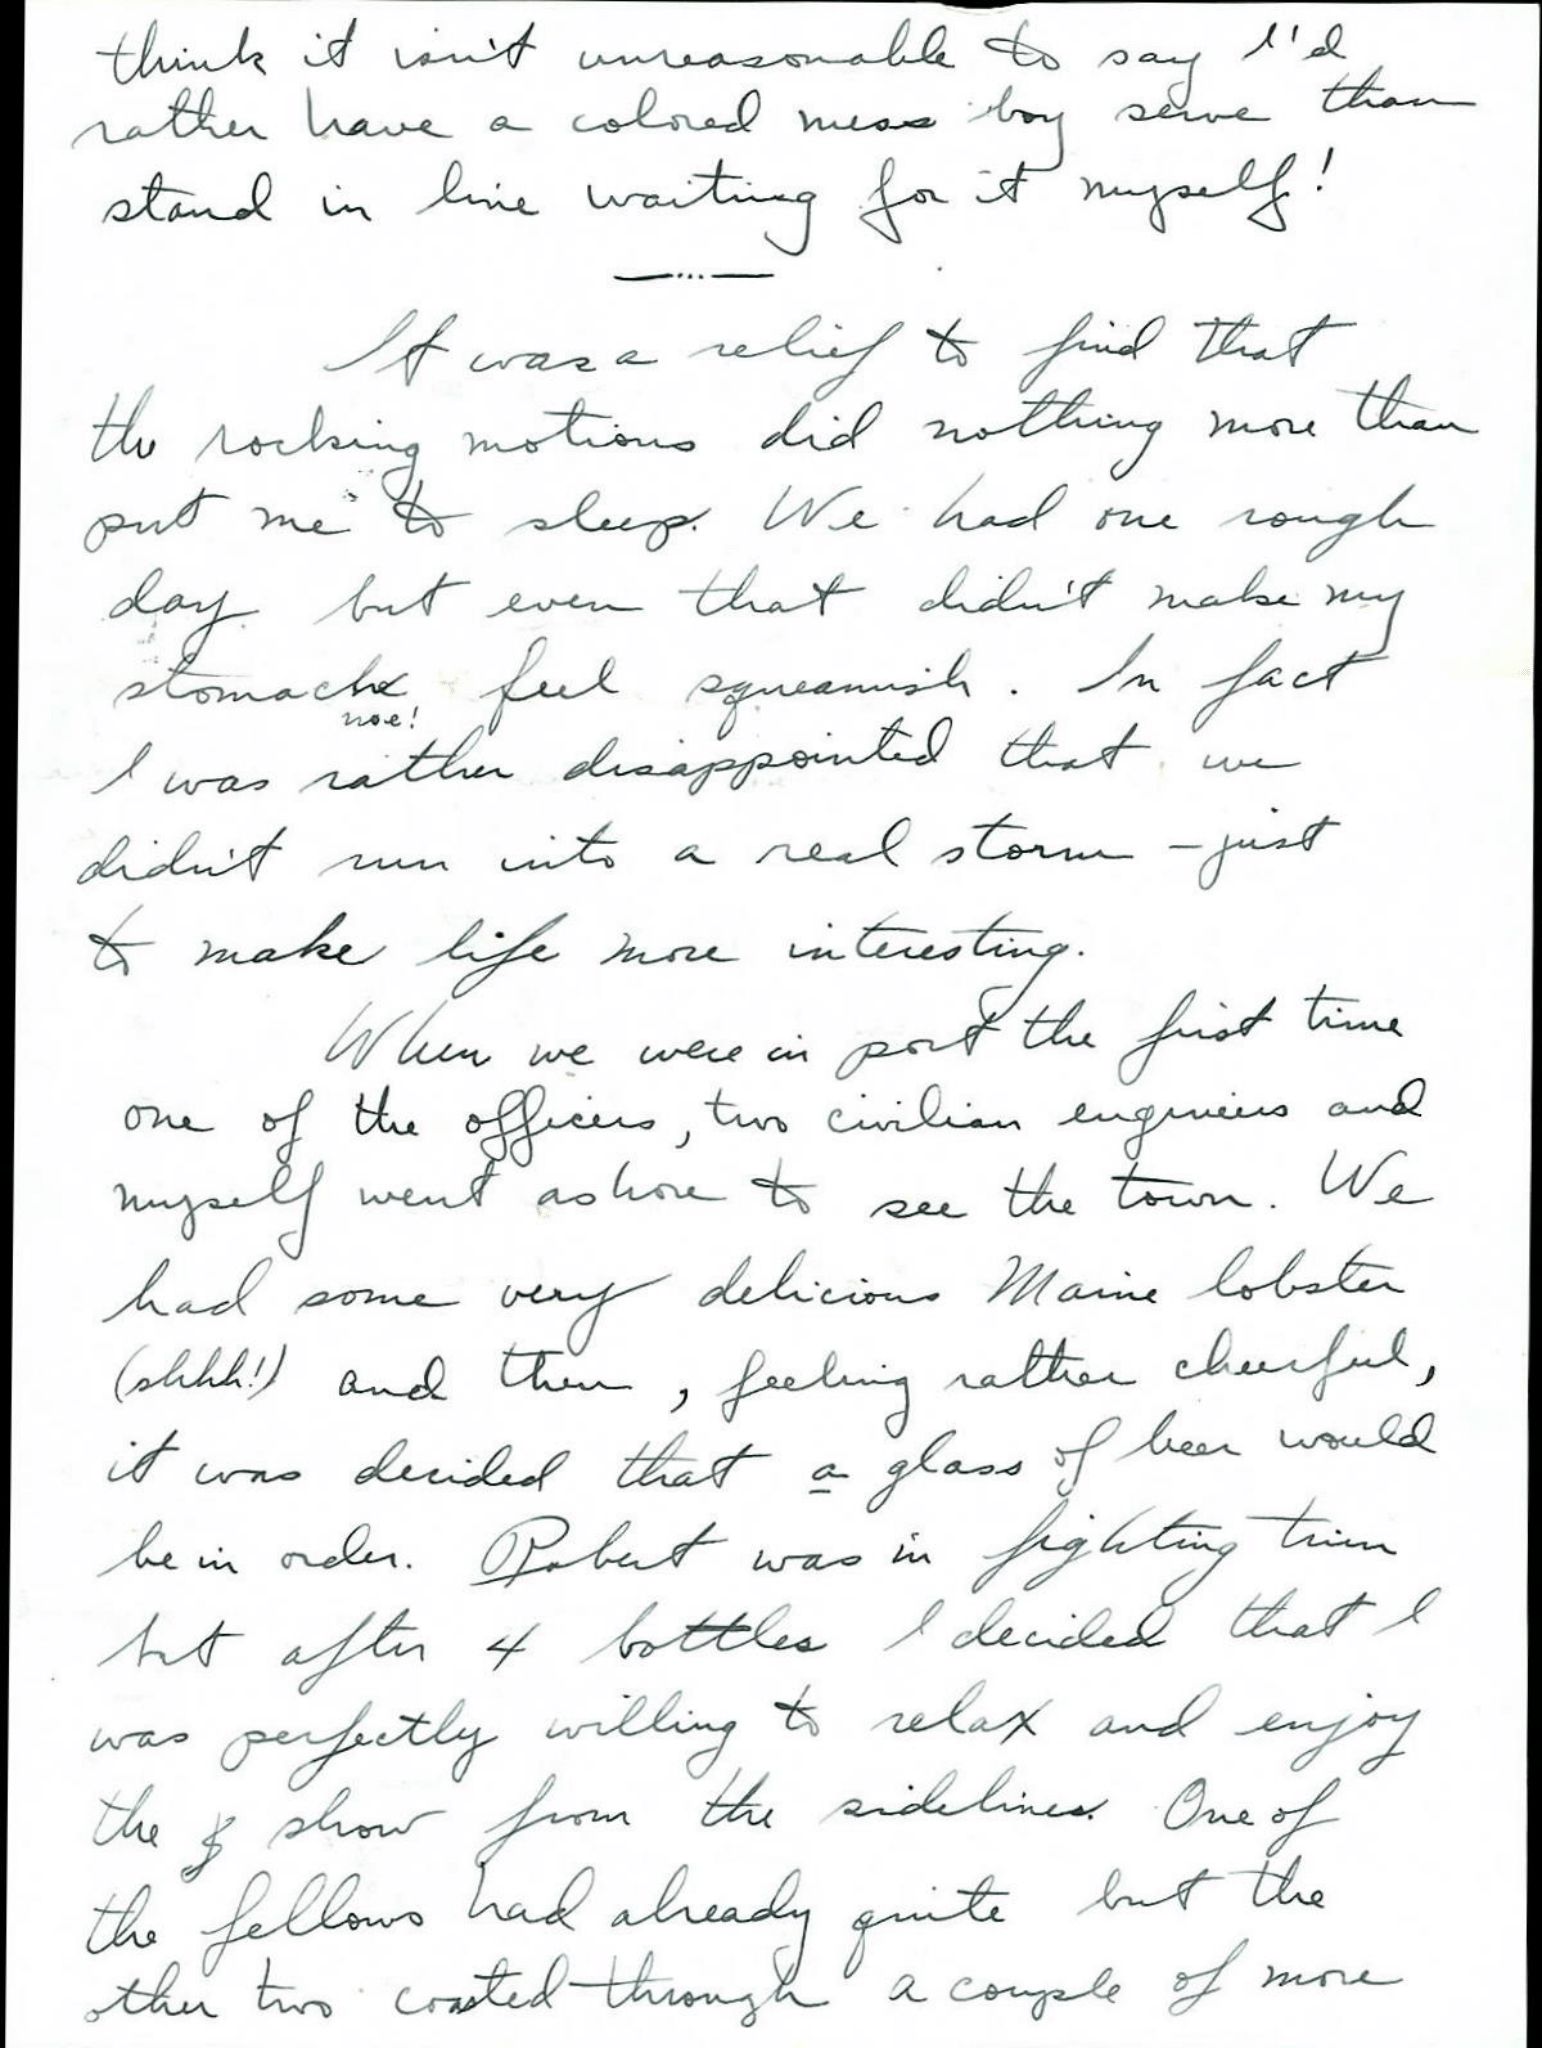 think it isn't unreasonable to say I'd
rather have a colored mess boy serve than
stand in line waiting for it myself!
—...—
It was a relief to find that
the rocking motions did nothing more than
put me to sleep. We had one rough
day but even that didn't make my
stomach feel squeamish. In fact
noe!
I was rather disappointed that we
didn't run into a real storm – just
to make life more interesting.
When we were in port the first time
one of the officers, two civilian engineers and
myself went ashore to see the town. We
had some very delicious Maine lobster
(shhh!) and then, feeling rather cheerful,
it was decided that a glass of beer would
be in order. Robert was in fighting trim
but after 4 bottles I decided that I
was perfectly willing to relax and enjoy
the show from the sidelines. One of
the fellows had already quite but the
other two coasted through a couple of more